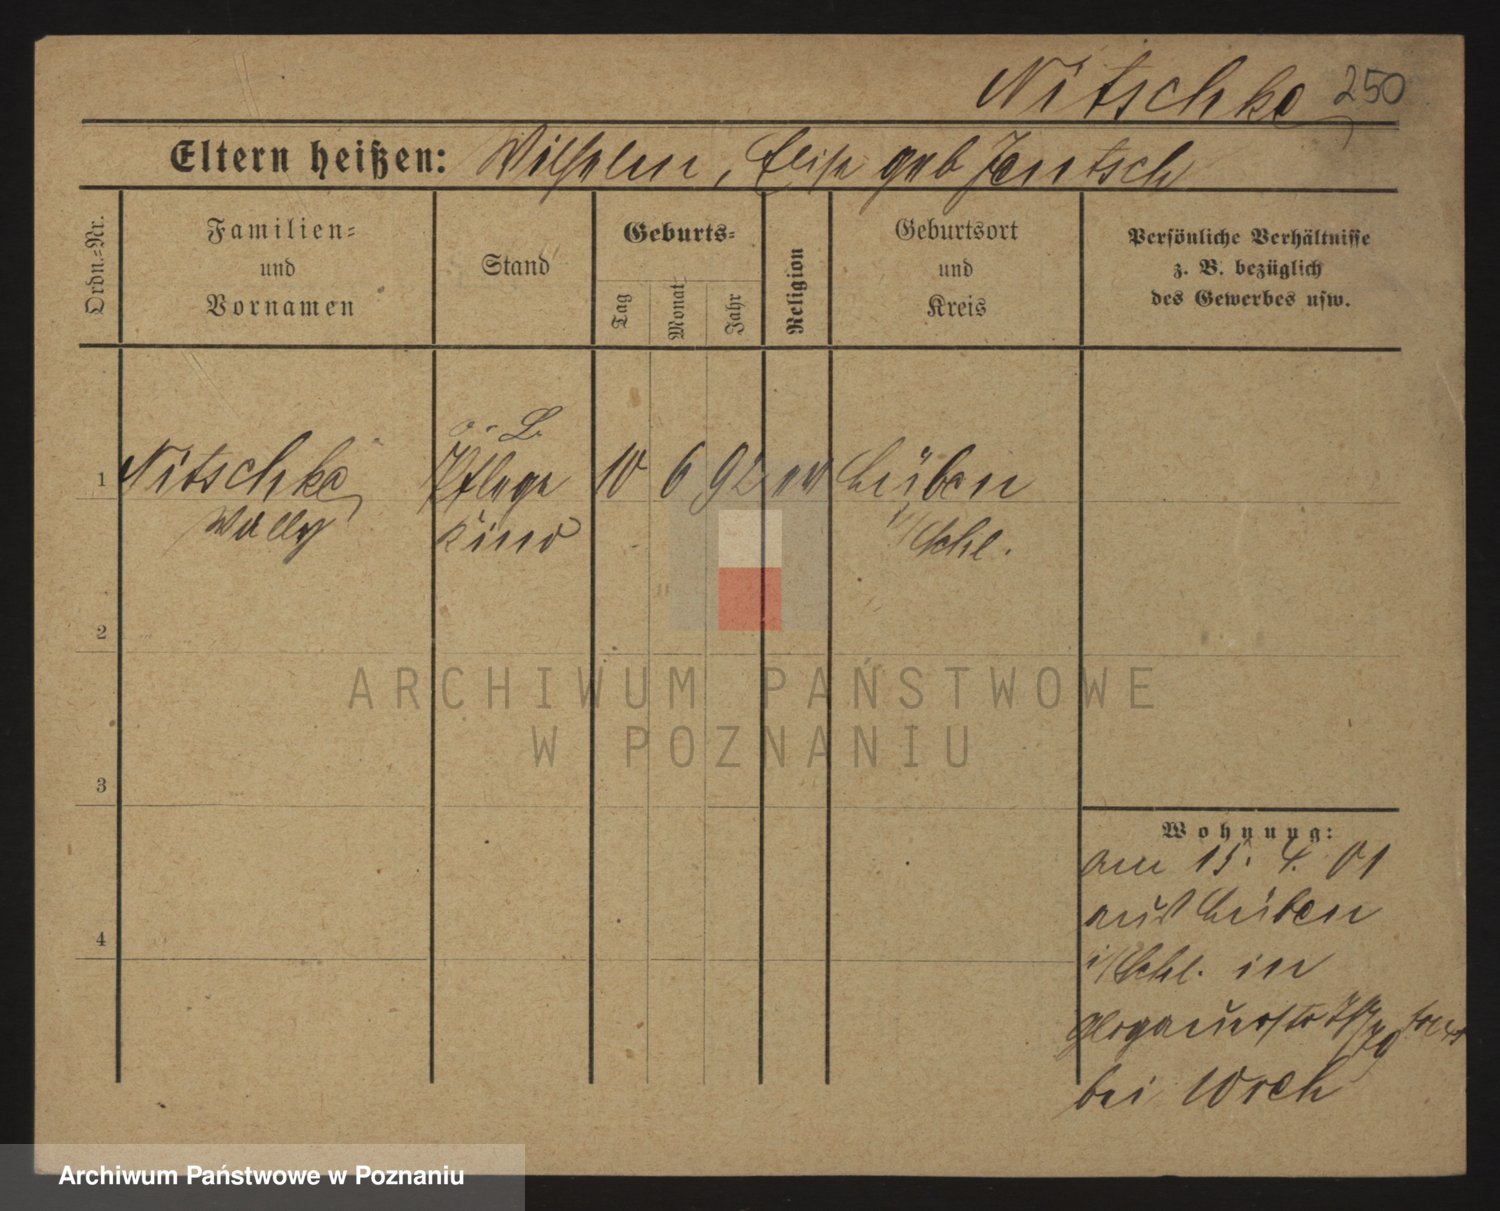 Nitschke 250
Eltern heißen: Wilhelm, Elise geb Jentsch
Ordn.-Nr.
Familien-
und
Vornamen
Stand
Geburts-
Tag
Monat
Jahr
Religion
Geburtsort
und
Kreis
Persönliche Verhältnisse
z. B. bezüglich
des Gewerbes usw.
1 Nitschke Pflege 10 6 92 ev Lüben
Wally Kind i/Schl.
2
3
4
Wohnung:
am 15. 4. 01
aus Lüben
i/Schl. in
Glogauerstr
bei
ARCHIWUM PAŃSTWOWE
W POZNANIU
Archiwum Państwowe w Poznaniu